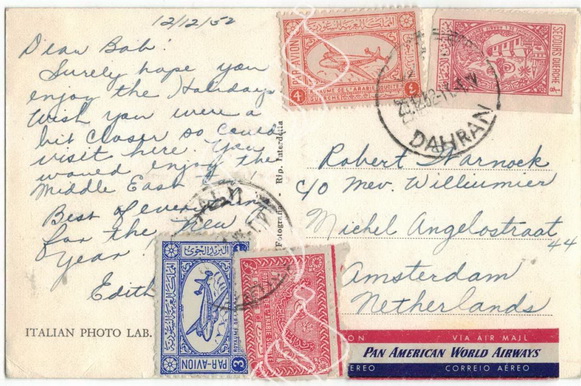 12/12/52
Dear Bob:
Surely hope you
enjoy the Holidays
Wish you were a
bit closer so could
visit here. You
would enjoy the
Middle East
Best of everything
for the New
Year
Edith
ITALIAN PHOTO LAB.
PAR-AVION
4
SECOURS OBLIGATOIRE
DAHRAN
Robert Warnock
c/o Mev. Williumier
Michel Angelostraat
44
Amsterdam
Netherlands
PAR-AVION
3
VIA AIR MAIL
PAN AMERICAN WORLD AIRWAYS
CORREIO AÉREO